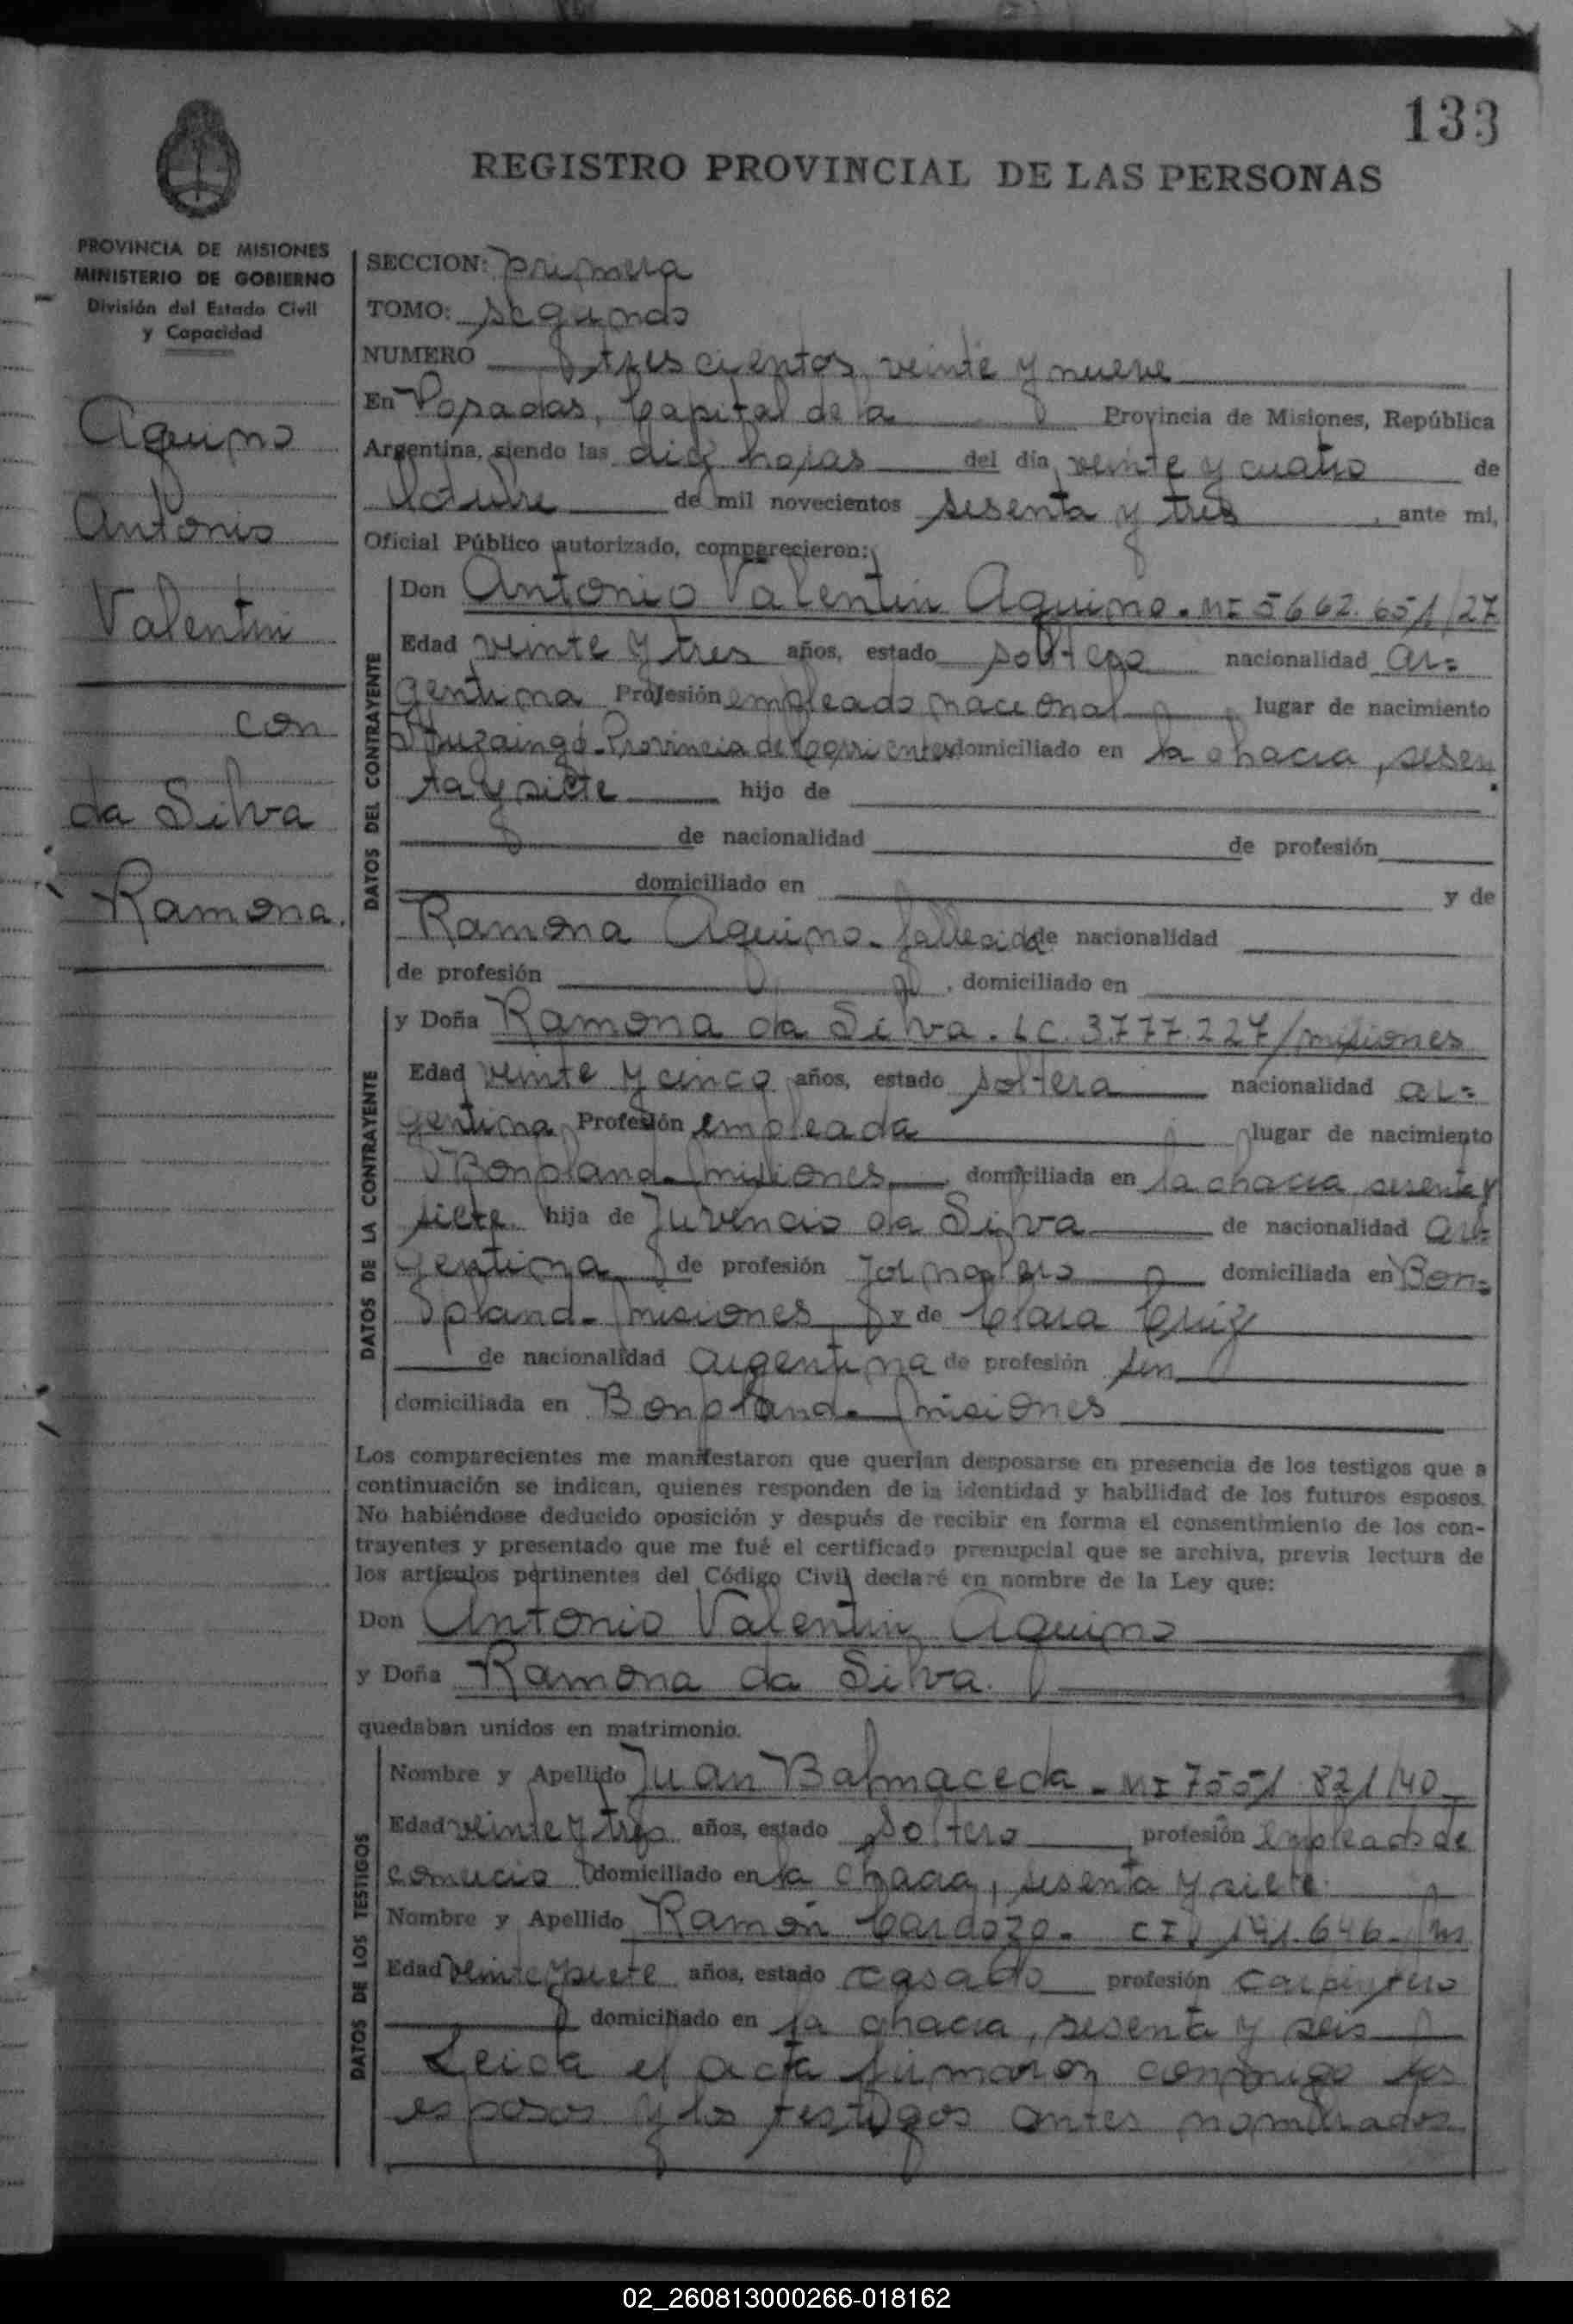 133
REGISTRO PROVINCIAL DE LAS PERSONAS
PROVINCIA DE MISIONES
MINISTERIO DE GOBIERNO
División del Estado Civil
y Capacidad
Aquino
Antonio
Valentin
con
da Silva
Ramona.
SECCION: primera
TOMO: segundo
NUMERO trescientos veinte y nueve
En Posadas, Capital de la Provincia de Misiones, República
Argentina, siendo las diez horas del día veinte y cuatro de
Octubre de mil novecientos sesenta y tres, ante mi,
Oficial Público autorizado, comparecieron:
DATOS DEL CONTRAYENTE
Don Antonio Valentin Aquino - MI 5662.651/27
Edad veinte y tres años, estado soltero nacionalidad ar=
gentina Profesión empleado nacional lugar de nacimiento
Ituzaingó - Provincia de Corrientes domiciliado en la chacra, sesen
ta y siete hijo de
de nacionalidad de profesión
domiciliado en y de
Ramona Aquino - fallecida de nacionalidad
de profesión , domiciliado en
DATOS DE LA CONTRAYENTE
y Doña Ramona da Silva. LC. 3.777.227/misiones
Edad veinte y cinco años, estado soltera nacionalidad ar=
gentina Profesión empleada lugar de nacimiento
Bonpland - misiones domiciliada en la chacra sesenta y
siete hija de Juvencio da Silva de nacionalidad ar=
gentina de profesión jornalero domiciliada en Bon=
pland - misiones y de Clara Cruz
de nacionalidad argentina de profesión sin
domiciliada en Bonpland - misiones
Los comparecientes me manifestaron que querían desposarse en presencia de los testigos que a
continuación se indican, quienes responden de la identidad y habilidad de los futuros esposos.
No habiéndose deducido oposición y después de recibir en forma el consentimiento de los con-
trayentes y presentado que me fué el certificado prenupcial que se archiva, previa lectura de
los artículos pertinentes del Código Civil declaré en nombre de la Ley que:
Don Antonio Valentin Aquino
y Doña Ramona da Silva.
quedaban unidos en matrimonio.
DATOS DE LOS TESTIGOS
Nombre y Apellido Juan Balmaceda - MI 7551.821/40
Edad veinte y tres años, estado soltero profesión empleado de
comercio domiciliado en la chacra, sesenta y siete
Nombre y Apellido Ramón Cardozo - CI 141.646 - m
Edad veinte y siete años, estado casado profesión carpintero
domiciliado en la chacra, sesenta y seis
Leida el acta firmaron conmigo los
esposos y los testigos antes nombrados
02_260813000266-018162